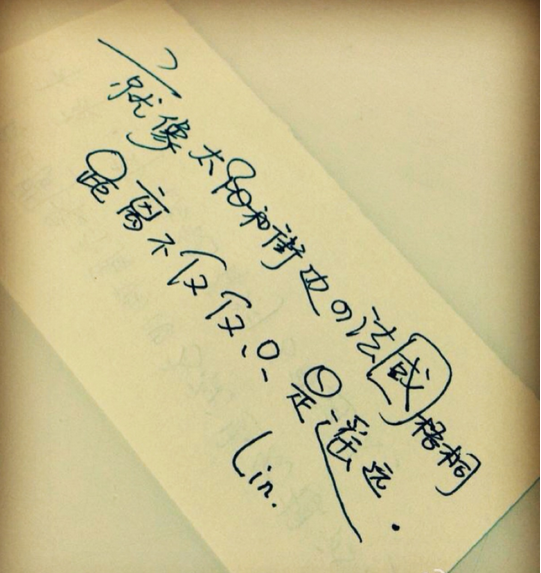 就像太阳和街边の法國梧桐
距离不仅仅只是遥远.
Lin.